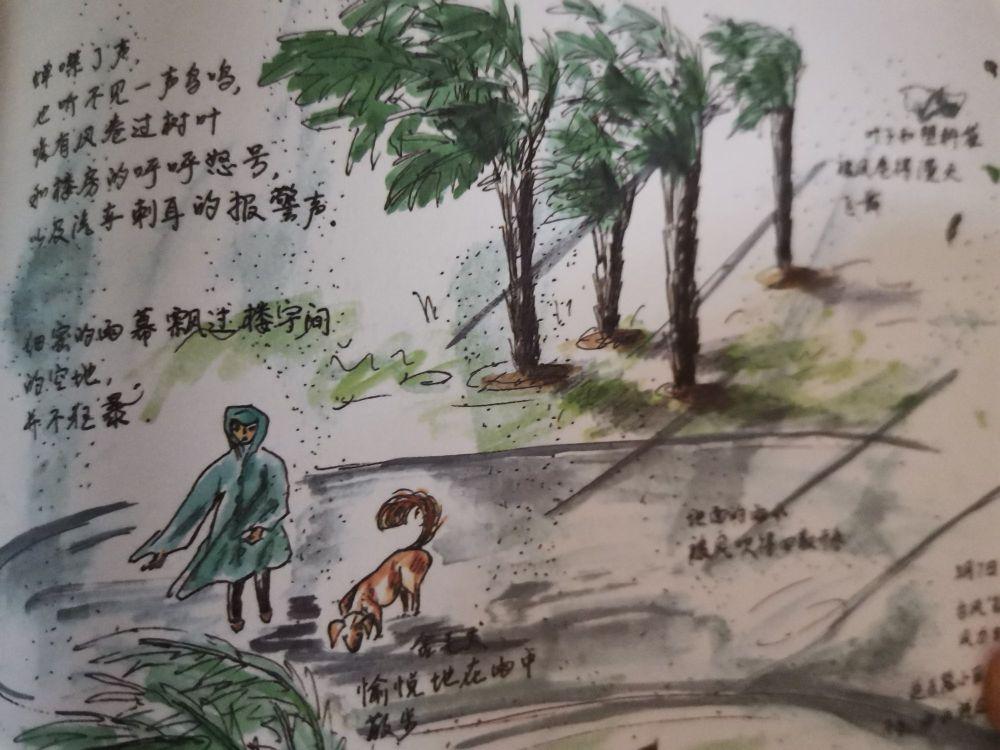 蝉噤了声,
也听不见一声鸟鸣,
唯有风卷过树叶
和楼房的呼呼怒号,
以及汽车刺耳的报警声.
细密的雨幕飘过楼宇间
的空地,
并不狂暴.
叶子和塑料袋
被风卷得漫天
飞舞
地面的雨水
被风吹得四散
金毛犬
愉悦地在雨中
散步